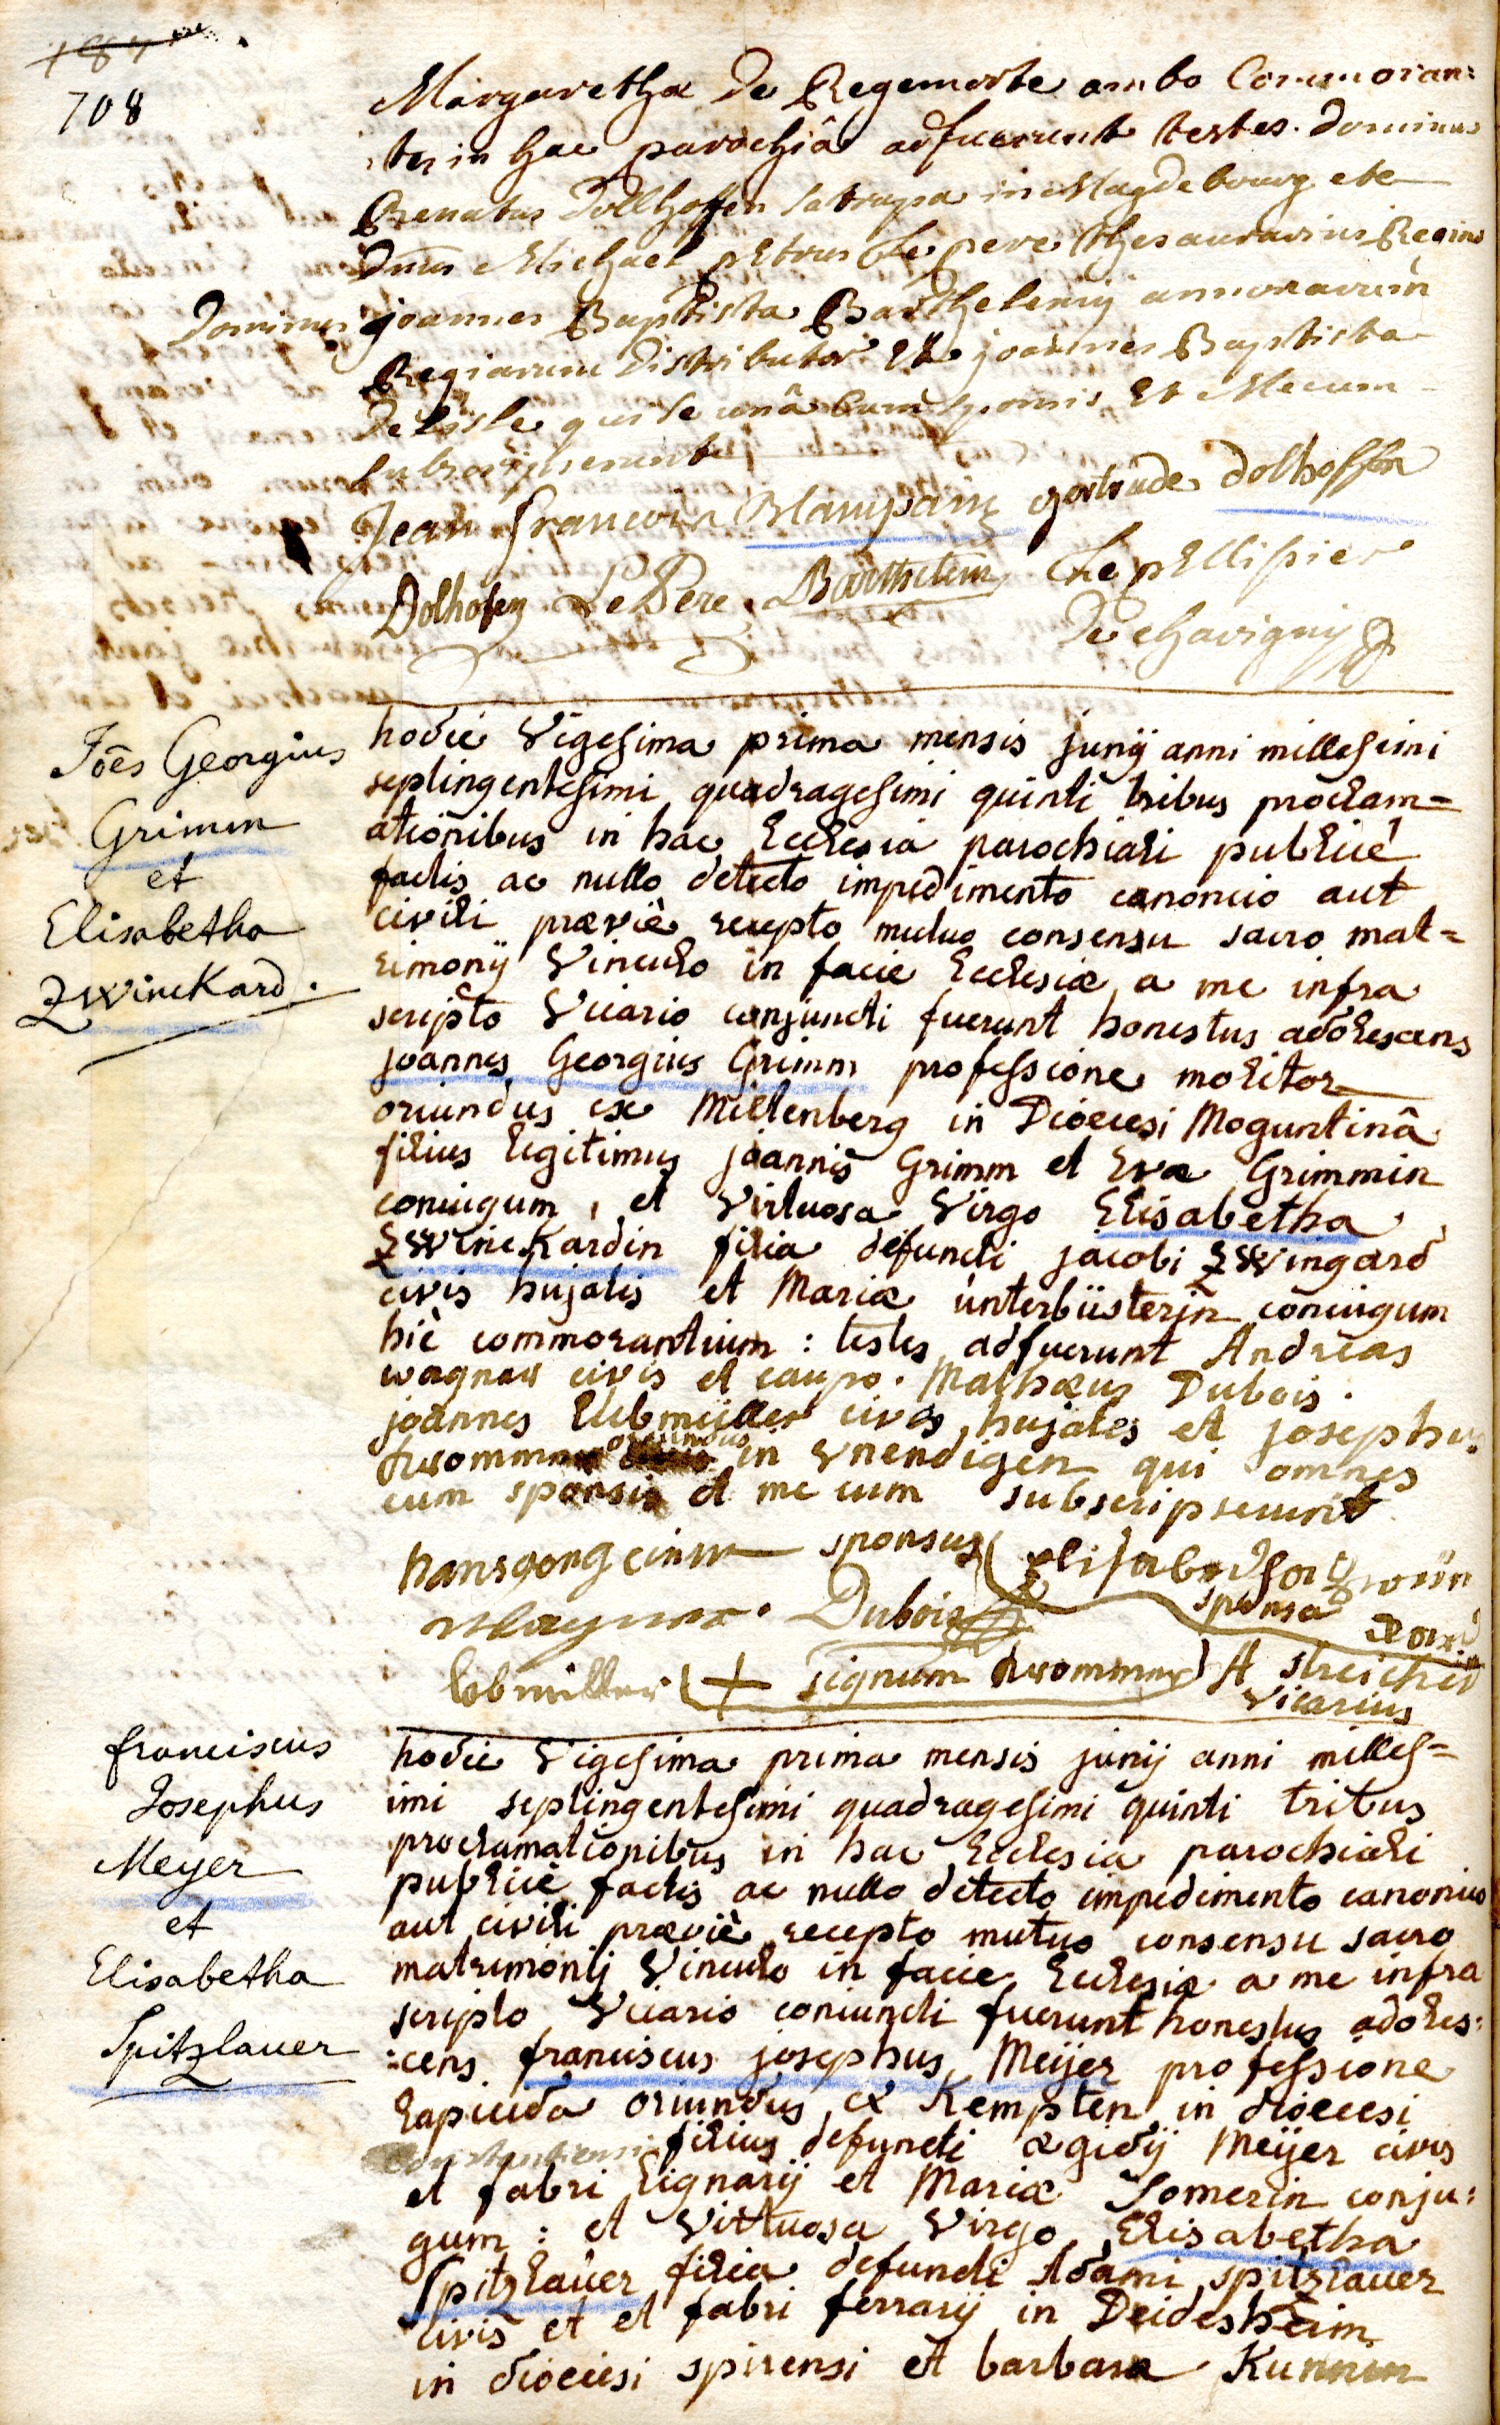 708
Margarethæ De Regemorte ambo Commoran:
:tes in hac parochiâ adfuerunt testes. Dominus
Renatus Dollhoffen Satrapa in Magdebourg etc
Dnus Michael petrus Le pere thesaurarius Regius
Dominus joannes Baptista Barthelemij annonarum
Regiarum Distributor Et joannes Baptista
De Lisle qui se unâ Cum sponsis Et Mecum
subscripserunt
Jean francois Blampain gertrude dolhoffen
Dolhofen Le Pere Barthelemy Le pellisier
De Chavignij
Joës Georgius
Grimm
et
Elisabetha
Zwinckard.
hodie Vigesima prima mensis junij anni millesimi
septingentesimi quadragesimi quinti tribus proclam=
ationibus in hac Ecclesia parochiali publicè
factis ac nullo detecto impedimento canonico aut
civili præviè recepto mutuo consensu sacro mat=
rimonij Vinculo in facie Ecclesiæ a me infra
scripto Vicario conjuncti fuerunt honestus adolescens
joannes Georgius Grimm professione molitor
oriundus ex Miltenberg in Dioecesi Moguntinâ
filius legitimus joannis Grimm et Evæ Grimmin
coniugum, et Virtuosa Virgo Elisabetha
Zwinckardin filia defuncti jacobi Zwingard
civis hujatis et Mariæ unterbüsterjn coniugum
hic commorantium : testes adfuerunt Andreas
wagner civis et caupo. Mathæus Dubois.
joannes Lebmüller cives hujates et josephus
kromm oriundus in Vnendigen qui omnes
cum sponsis et me cum subscripserunt
hansgorg sponsus Elisabedha
sponsa
Wagner. Dubois
lebmiller + signum A streicher
Vicarius
franciscus
Josephus
Meyer
et
Elisabetha
Spitzlauer
hodie Vigesima prima mensis junij anni milles=
imi septingentesimi quadragesimi quinti tribus
proclamationibus in hac Ecclesia parochiali
publicè factis ac nullo detecto impedimento canonico
aut civili præviè recepto mutuo consensu sacro
matrimonij Vinculo in facie Ecclesiæ a me infra
scripto Vicario coniuncti fuerunt honestus adoles:
:cens franciscus josephus Meijer professione
lapicida oriundus ex Kempten in dioecesi
Constantiensi filius defuncti ægidij Meijer civis
et fabri lignarij et Mariæ Somerin conju:
gum : et Virtuosa Virgo Elisabetha
Spitzlauer filia defuncti Adami spitzlauer
civis et et fabri ferrarij in Deidesheim
in dioecesi spirensi et barbara Kunnin